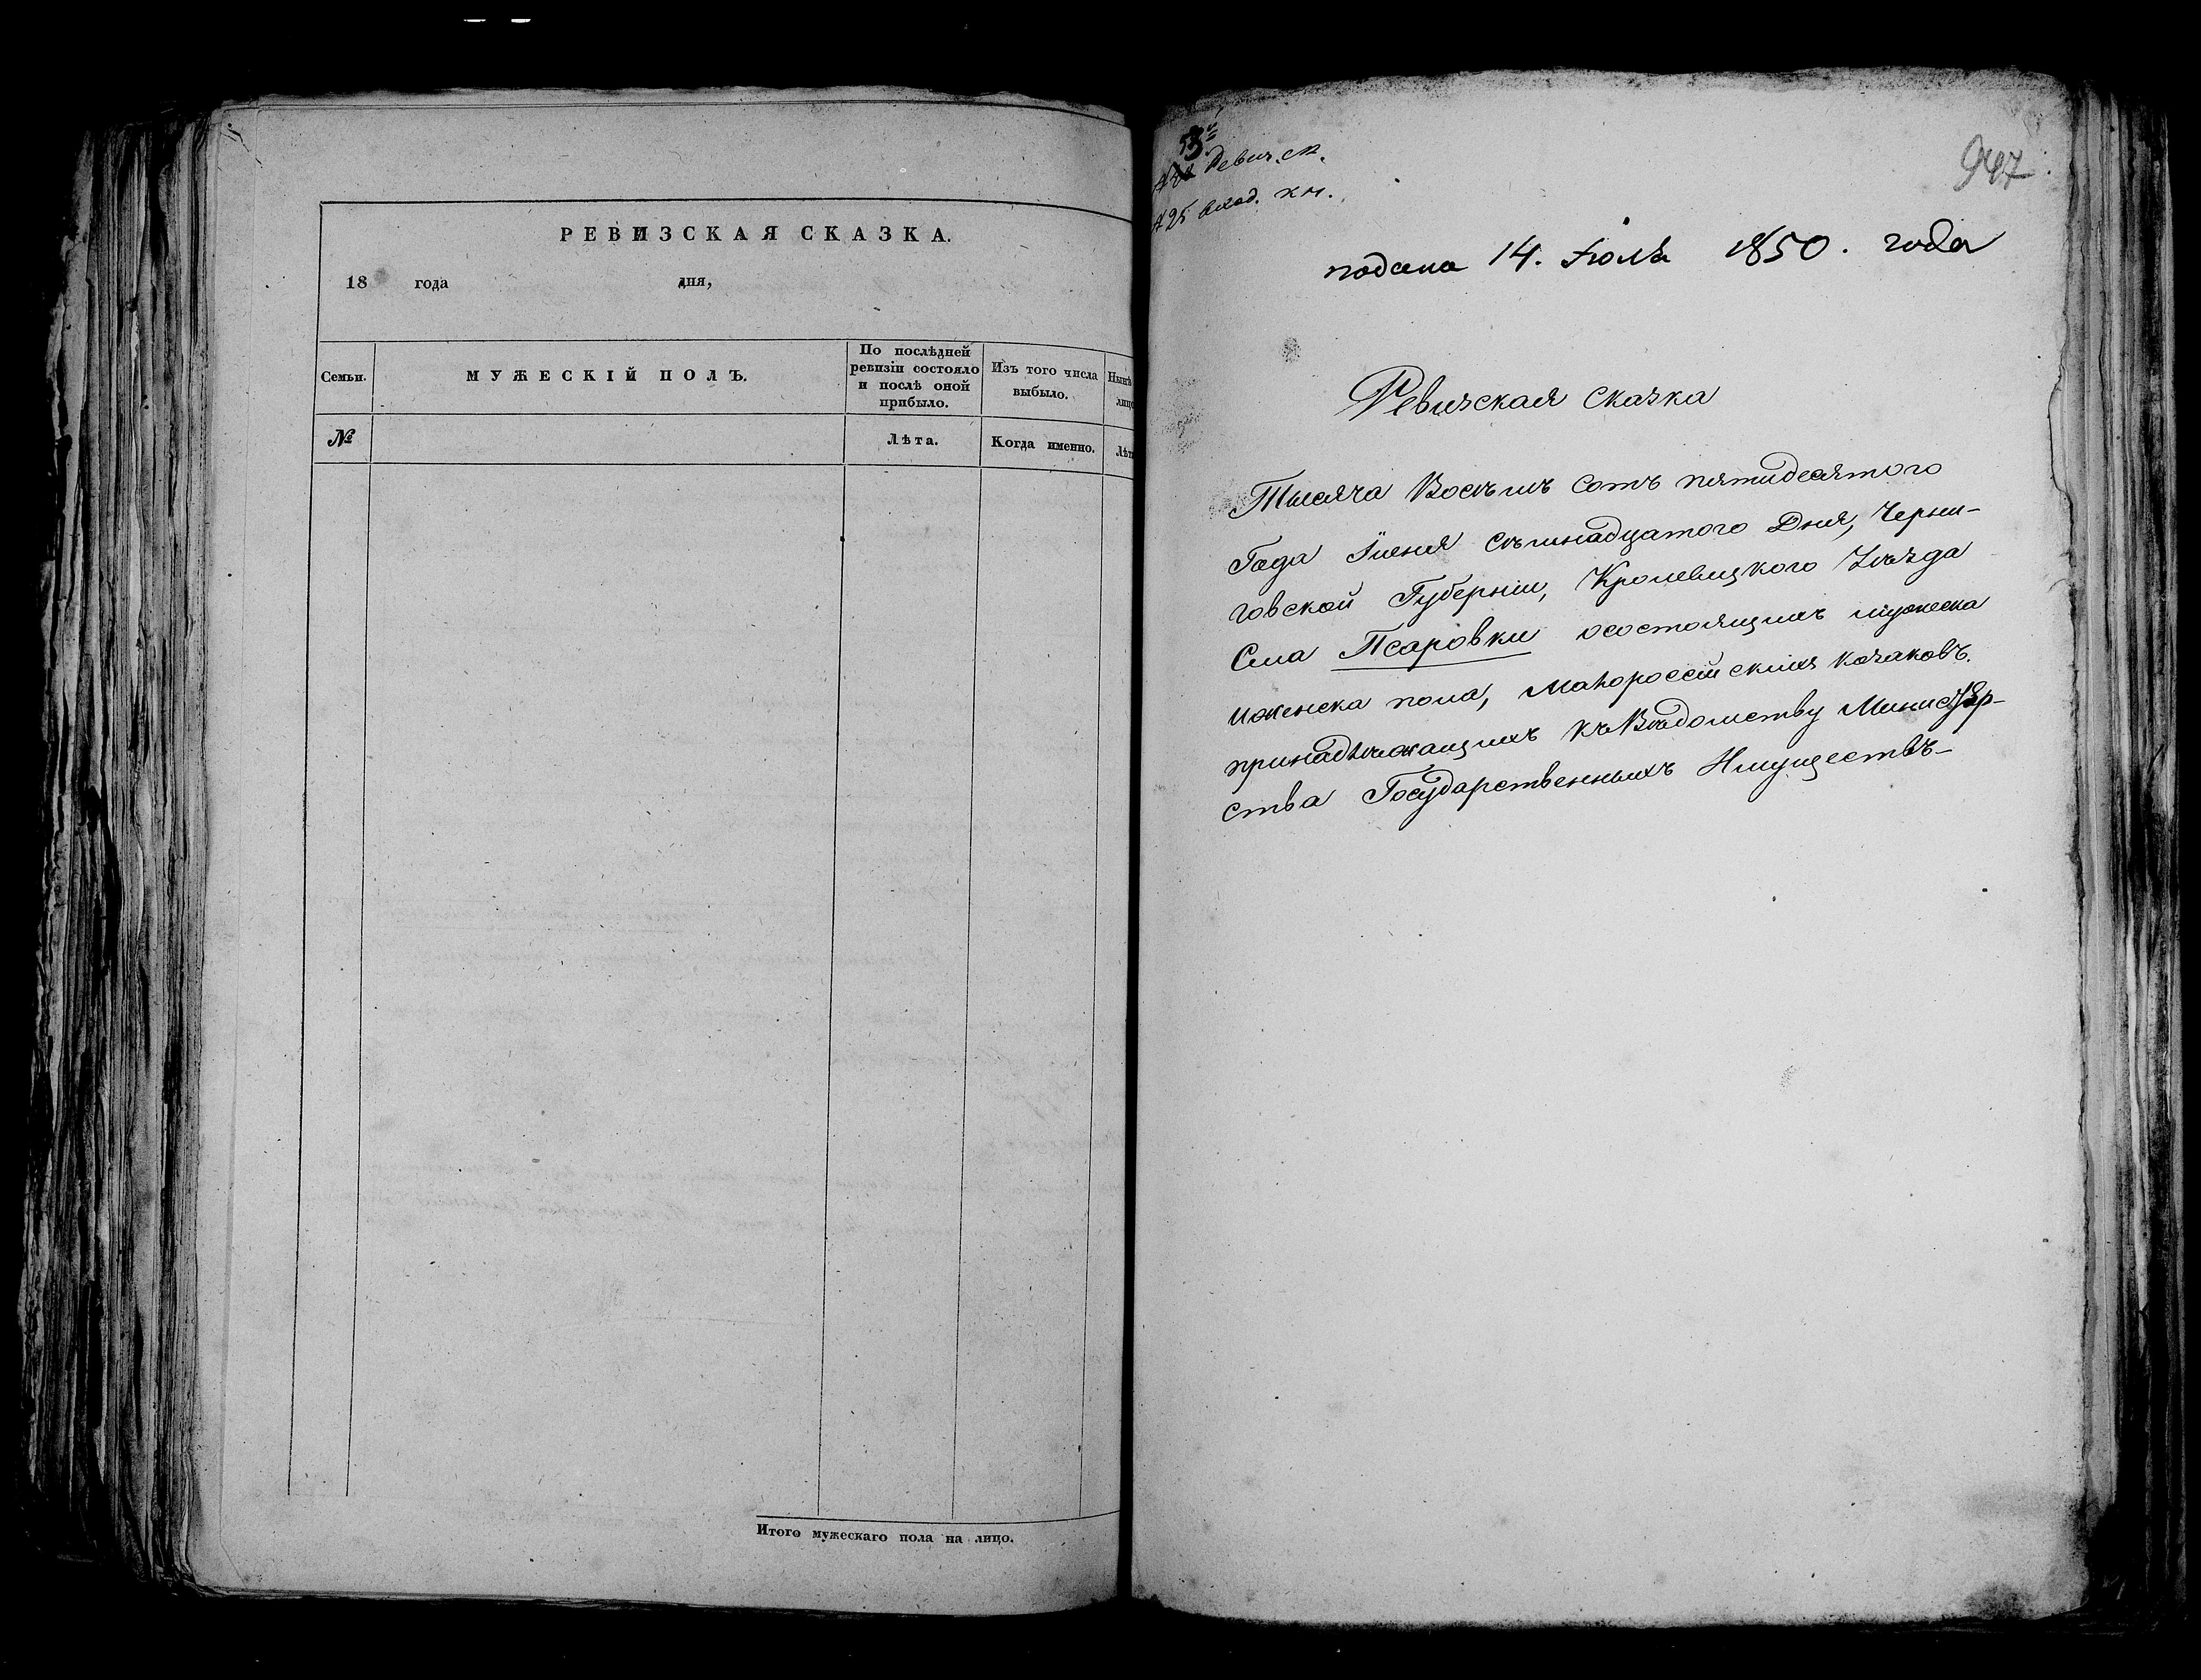 РЕВИЗСКАЯ СКАЗКА.
18 года дня,
Семьи.
МУЖЕСКІЙ ПОЛЪ.
По послѣдней
ревизіи состояло
и послѣ оной
прибыло.
Изъ того числа
выбыло.
№
Лѣта.
Когда именно.
Итого мужескаго пола на лицо.
Ревиз. ск.
№ 25 вход. кн.
947
подана 14. Іюля 1850. года
Ревизская сказка
Тысяча Восемъ сотъ пятидесятого
Года Іюня Семнадцатого Дня, Черни-
говской Губерніи, Кролевецкого Уѣзда
Села Псаровки осостоящихъ мужеска
иженска пола, Малороссійскихъ козаковъ.
принадлежащихъ къ Вѣдомству Министер-
ства Государственныхъ Имуществъ-